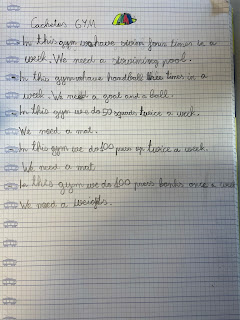 Cachetes GYM
- In this gym we have swim four times in a
week. We need a swimming pool.
- In this gym we have handball three times in a
week. We need a goat and a ball.
- In this gym we do 50 squads twice a week.
We need a mat.
- In this gym we do 100 press up twice a week.
We need a mat.
- In this gym we do 100 press banks once a week
We need a weights.